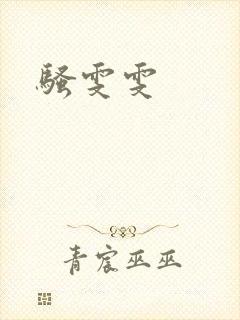 骚雯雯
青宸巫巫